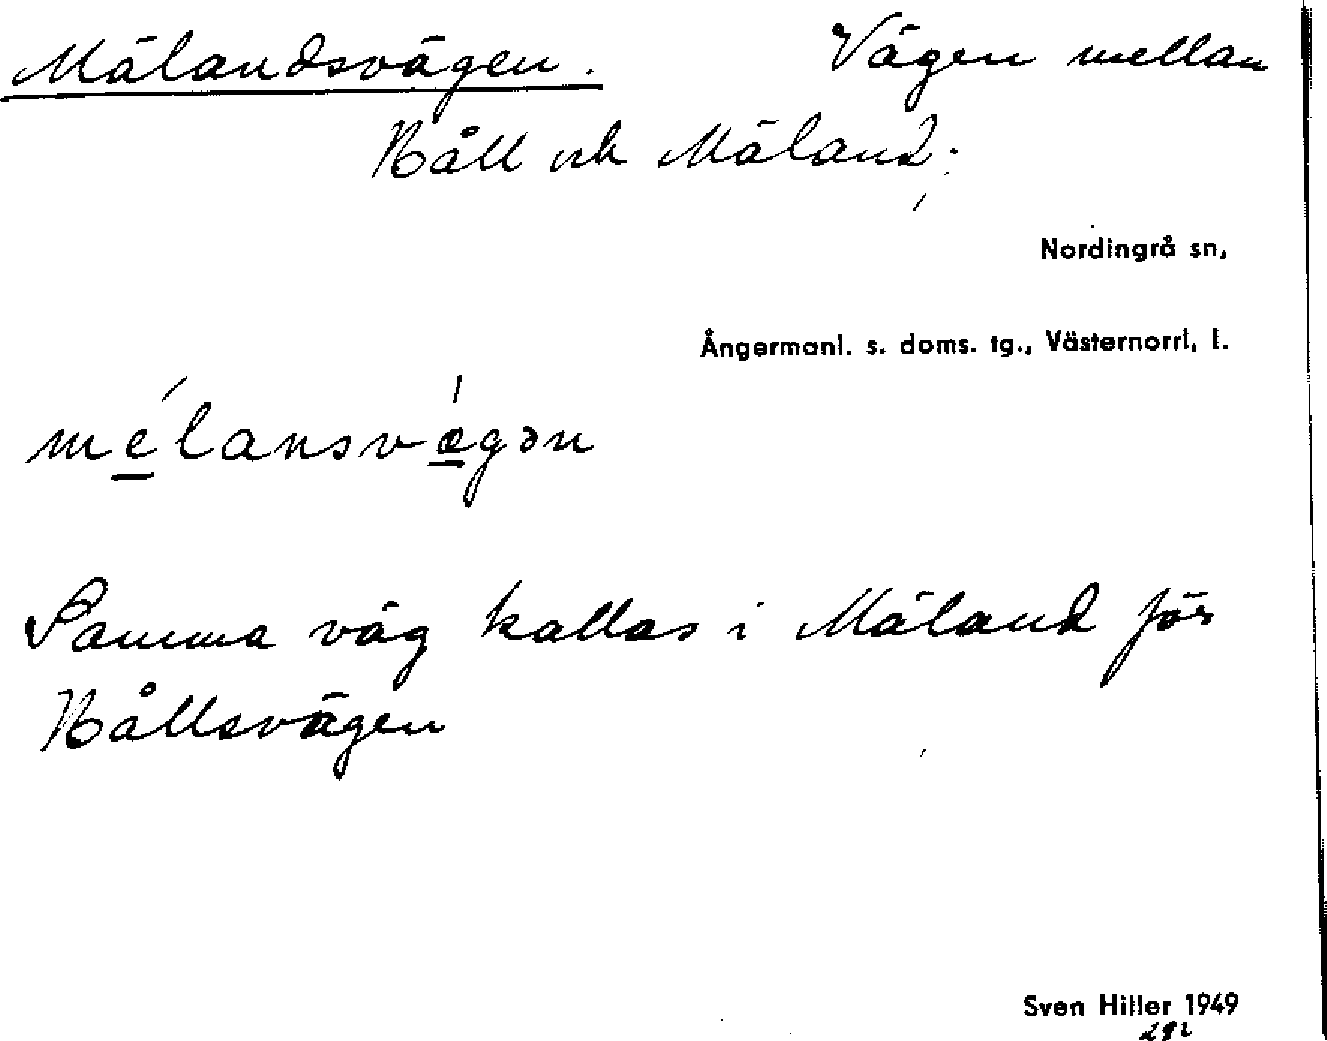 Mälandsvägen. Vägen mellan
Båll och Mäland.
Nordingrå sn,
Ångermanl. s. doms. tg., Västernorrl. l.
mélansvǽgən
Samma väg kallas i Mäland för
Bållsvägen
Sven Hiller 1949